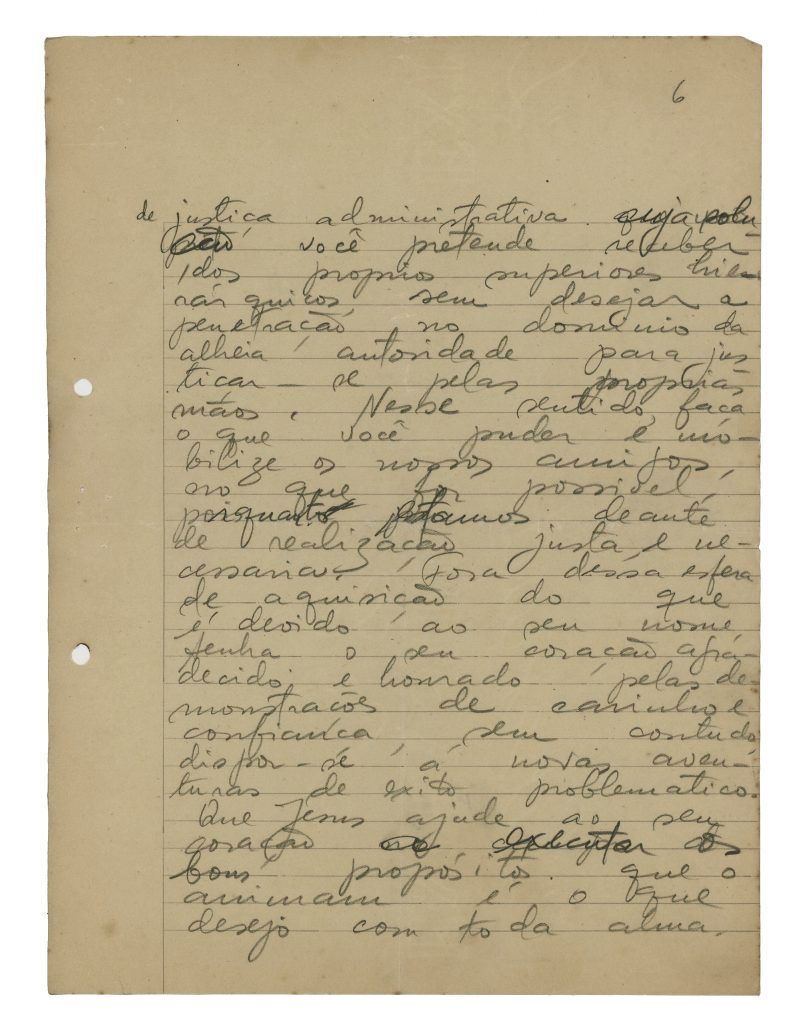 6
de justiça administrativa cuja solu-
ção você pretende receber
dos proprios superiores hie-
rárquicos, sem desejar a
penetração no dominio da
alheia autoridade para jus
tiçar-se pelas proprias
mãos. Nesse sentido, faça
o que você puder e mo-
bilize os nossos amigos,
no que fôr possivel,
porquanto estamos deante
de realização justa e ne-
cessaria. Fora dessa esfera
de aquisição do que
é devido ao seu nome,
tenha o seu coração agra-
decido e honrado pelas de-
monstrações de carinho e
confiança, sem contudo,
dispor-se á novas aven-
turas de exito problematico.
Que Jesus ajude ao seu
coração no executar os
bons propósitos que o
animam é o que
desejo com toda alma.